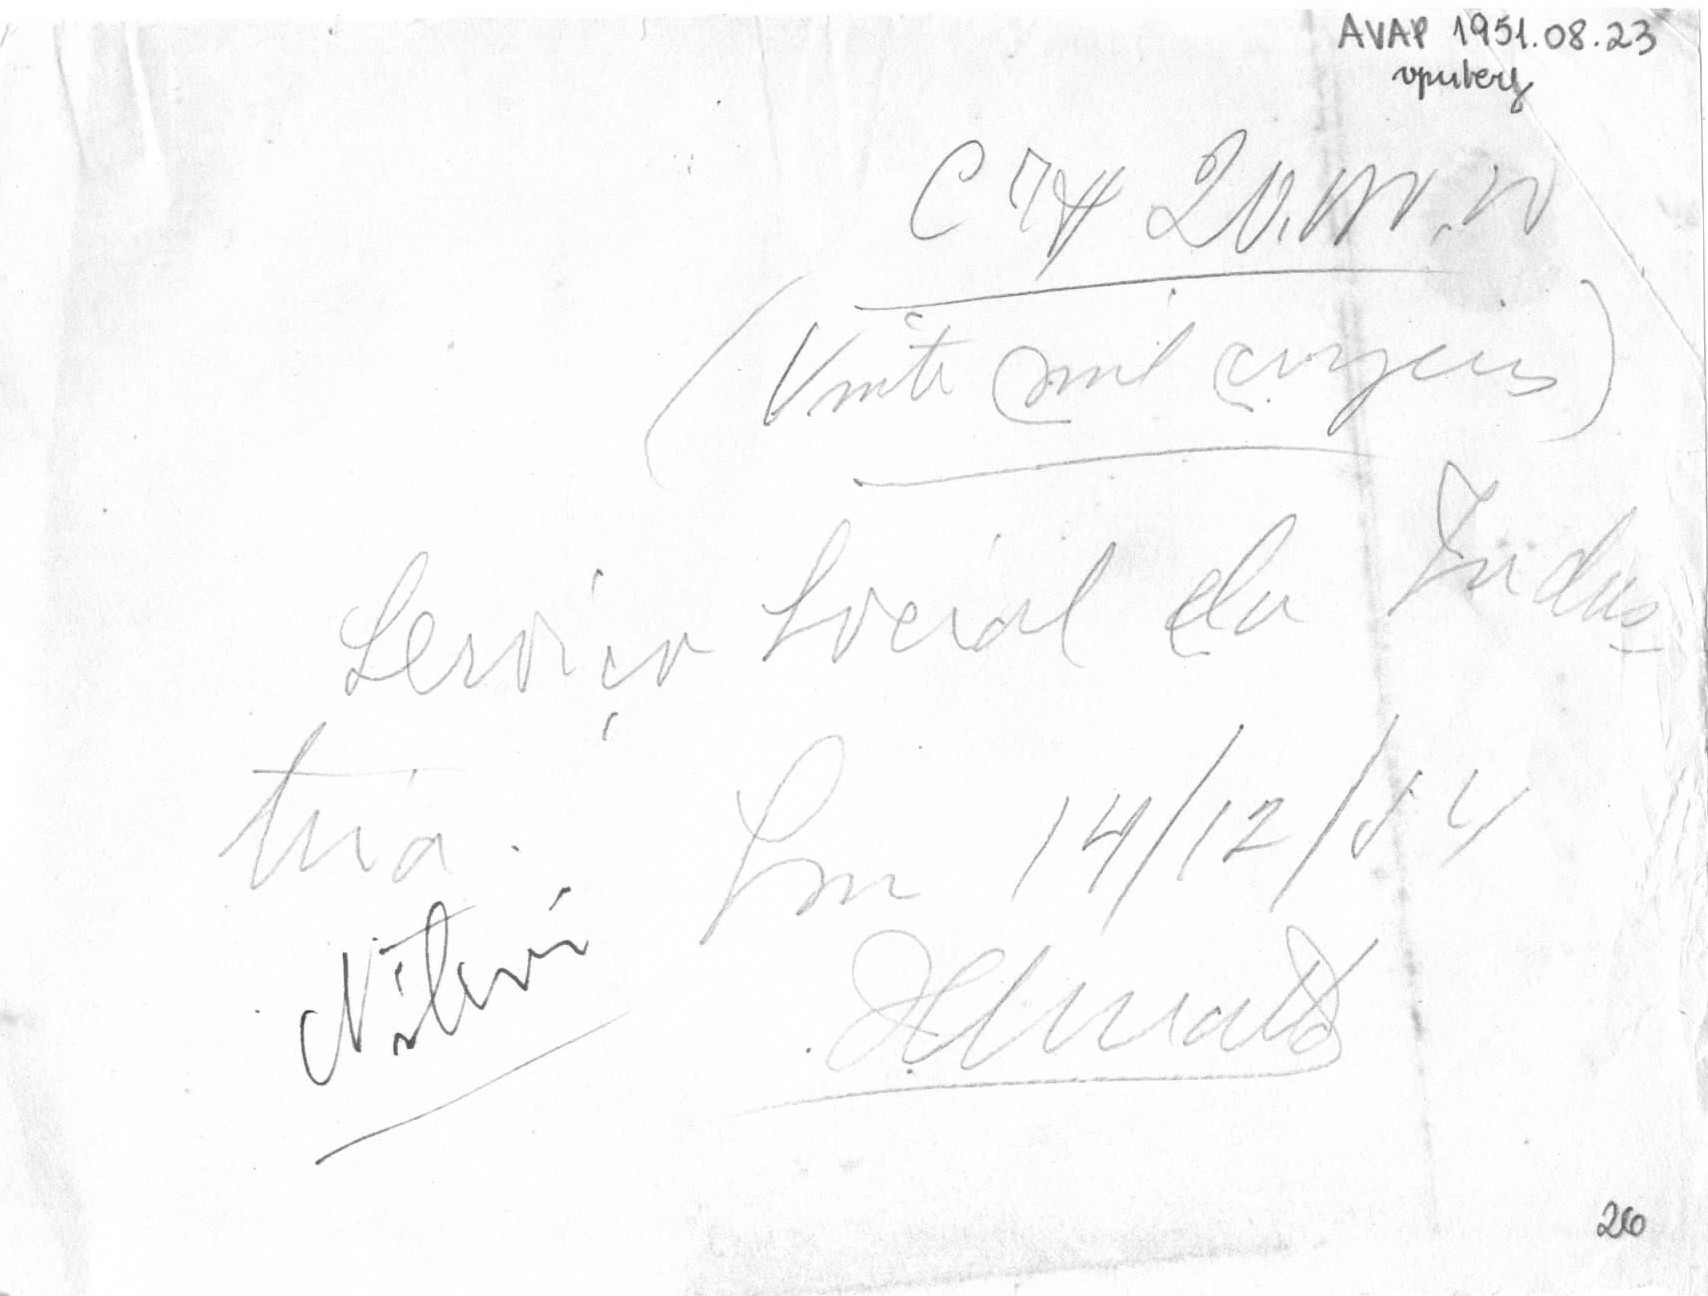 AVAP 1951.08.23
vpuberg
Cr$ 20.000.00
(Vinte mil cruzeiros)
Serviço Social da Indus
tria. Em 14/12/54
26